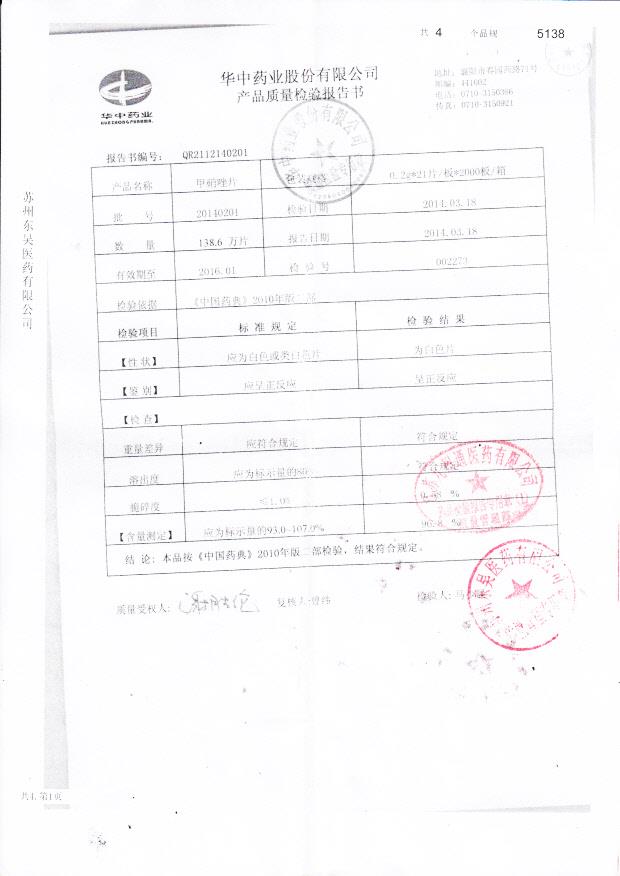 共 4 个品规 5138
华中药业
华中药业股份有限公司
产品质量检验报告书
地址：襄阳市春园西路71号
邮编：441002
电话：0710-3150386
传真：0710-3150921
苏州东吴医药有限公司
报告书编号： QR2112140201
产品名称 甲硝唑片 0.2g*21片/板*2000板/箱
批 号 20140201 检验日期 2014.03.18
数 量 138.6 万片 报告日期 2014.03.18
有效期至 2016.01 检 验 号 002273
检验依据 《中国药典》2010年版二部
检验项目 标 准 规 定 检 验 结 果
【性 状】 应为白色或类白色片 为白色片
【鉴 别】 应呈正反应 呈正反应
【检 查】
重量差异 应符合规定 符合规定
溶出度 应为标示量的80% 符合规定
脆碎度 %
【含量测定】 应为标示量的93.0-107.0% %
结 论：本品按《中国药典》2010年版二部检验，结果符合规定。
质量受权人： 复核人：曾纬 检验人：
共1,第1页